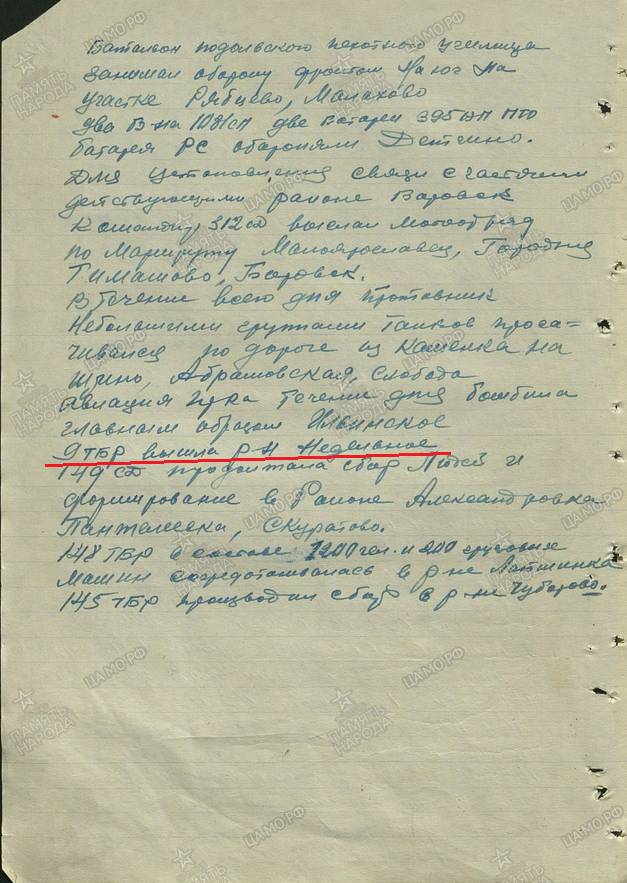 Батальон подольского пехотного училища
занимал оборону фронтом на юг на
участке Рябцево, Малахово
два б-на 1081 сп две батареи 395 ап ПТО
батарея РС обороняли Детчино.
Для установления связи с частями
действующими районе Боровск
Командир 312 сд выслал мотоотряд
по маршруту Малоярославец, Городня
Тимашово, Боровск.
В течение всего дня противник
небольшими группами танков проса=
чивался по дороге из Каменка на
Шино, Абрамовская, Слобода
Авиация пр-ка течении дня бомбила
главным образом Ильинское
9 ТБР вышла р-н Недельное
149 сд продолжала сбор людей и
формирование в районе Александровка
Пантелеевка, Скуратово.
148 ТБР в составе 1200 чел. и 200 грузовых
машин сосредотачивалась в р-не Латшинка
145 ТБР производил сбор в р-не Чубарово.
ПАМЯТЬ НАРОДА
ЦАМО РФ